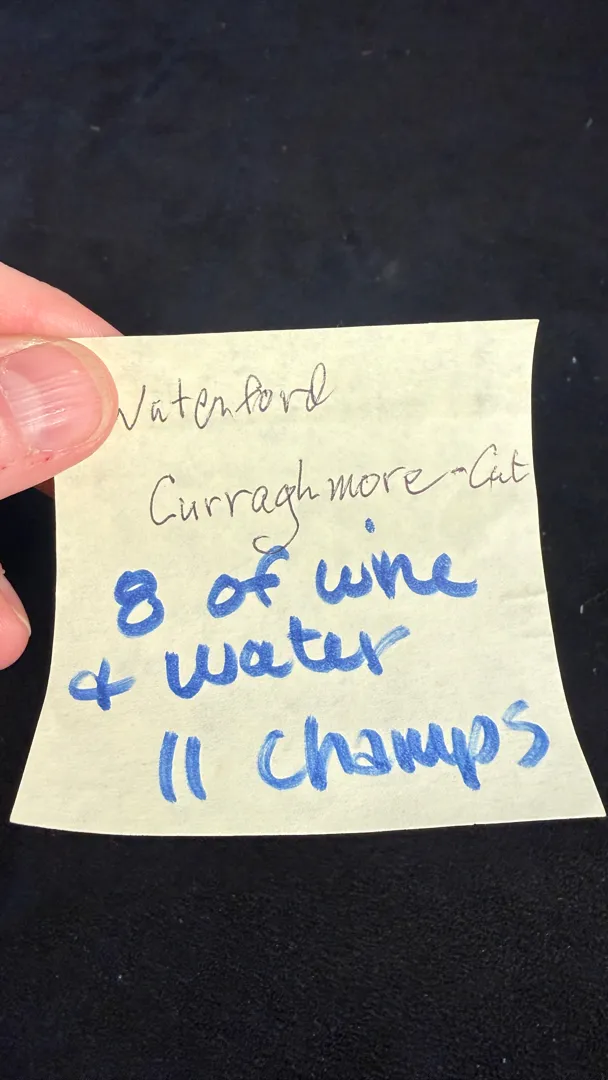 Waterford
Curraghmore-Cut
8 of wine
+ water
11 Champs